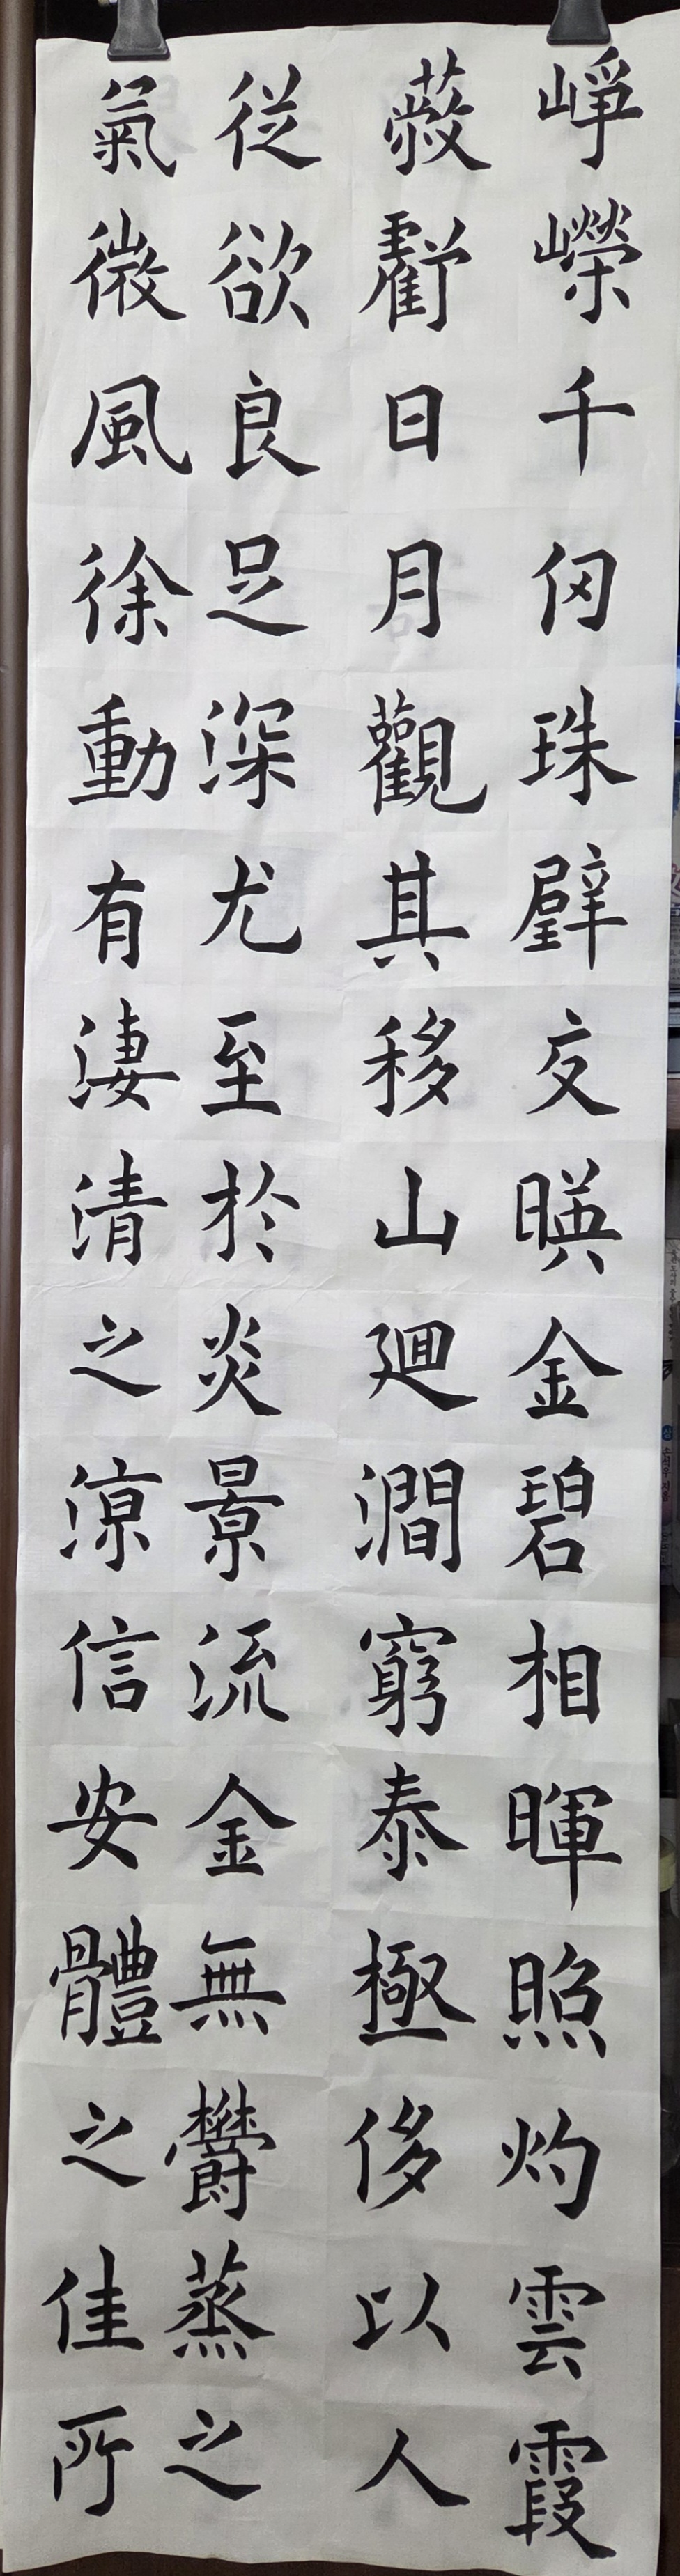 崢嶸千仞珠壁交暎金碧相暉照灼雲霞
蔽虧日月觀其移山廻澗窮泰極侈以人
從欲良足深尤至於炎景流金無鬱蒸之
氣微風徐動有淒清之涼信安體之佳所